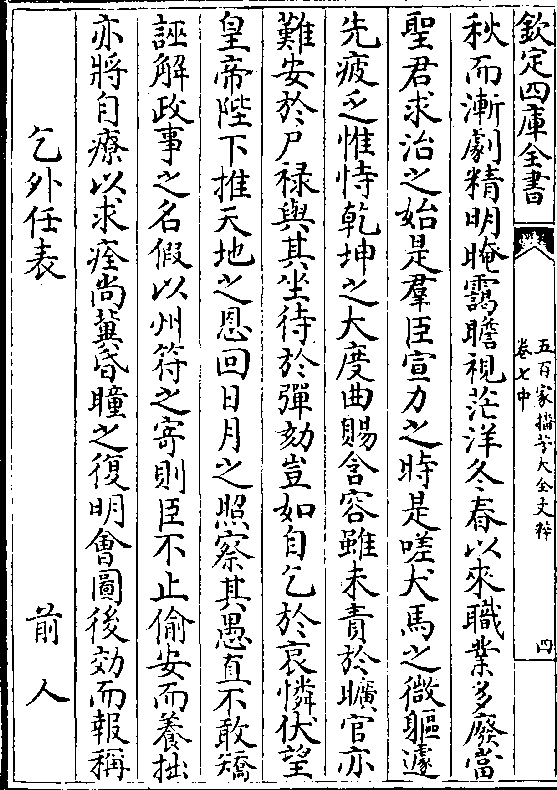 欽定四庫全書
五百家播芳大全文粹
卷七中
四
秋而漸劇精明晻靄瞻視茫洋冬春以來職業多廢當
聖君求治之始是羣臣宣力之時是嗟犬馬之微軀遽
先疲乏惟恃乾坤之大度曲賜含容雖未責於曠官亦
難安於尸禄與其坐待於彈劾豈如自乞於哀憐伏望
皇帝陛下推天地之恩回日月之照察其愚直不敢矯
誣解政事之名假以州符之寄則臣不止偷安而養拙
亦將自療以求痊尚冀昏瞳之復明會圖後効而報稱
乞外任表 前人